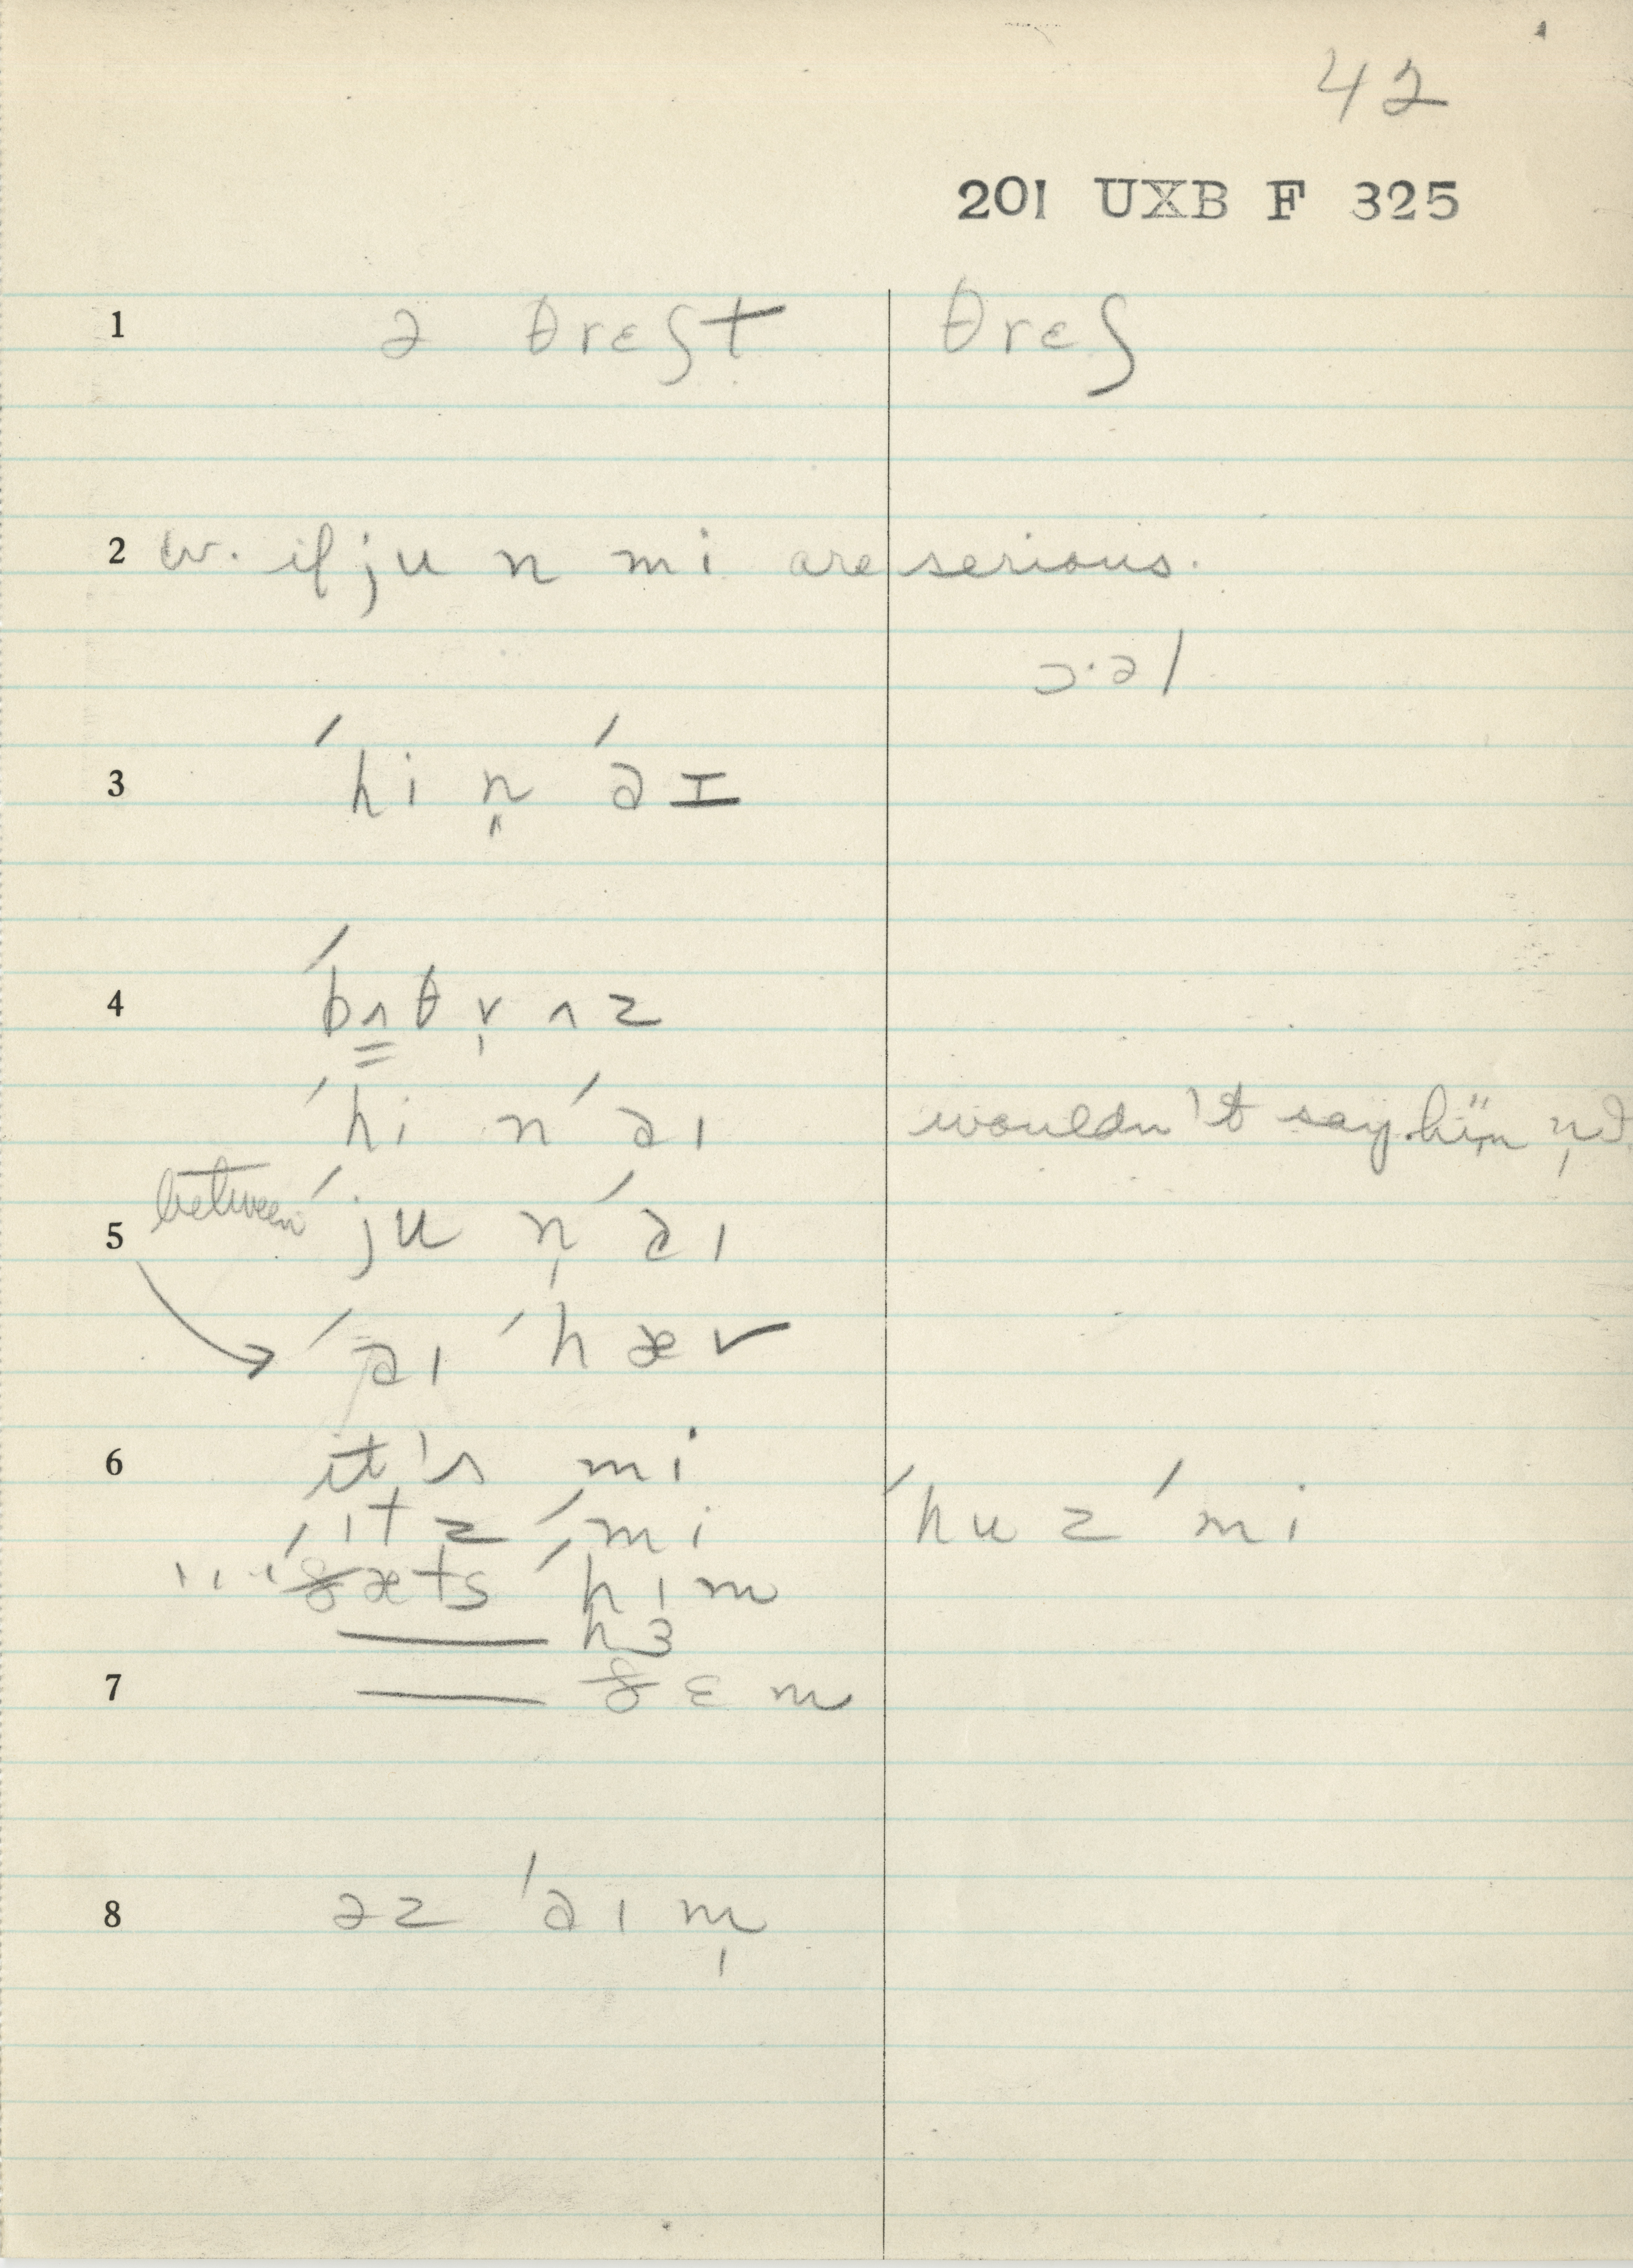 42
201 UXB F 325
1 ə θrɛʃt θrɛʃ
2 w. if ju n mi are serious.
ɔ·əl
3 ˈhi n̩ ˈəɪ
4 ˈbʌθ r̩ ʌz
ˈhi n ˈəɪ wouldn't say
5 between ˈju n̩ ˈəɪ
ˈəɪ ˈhæv
6 it's mi
ˈɪtz ˈmi ˈhuz ˈmi
ˈðæts ˈhɪm
hɜ
7 ðɛm
8 əz ˈəɪm̩